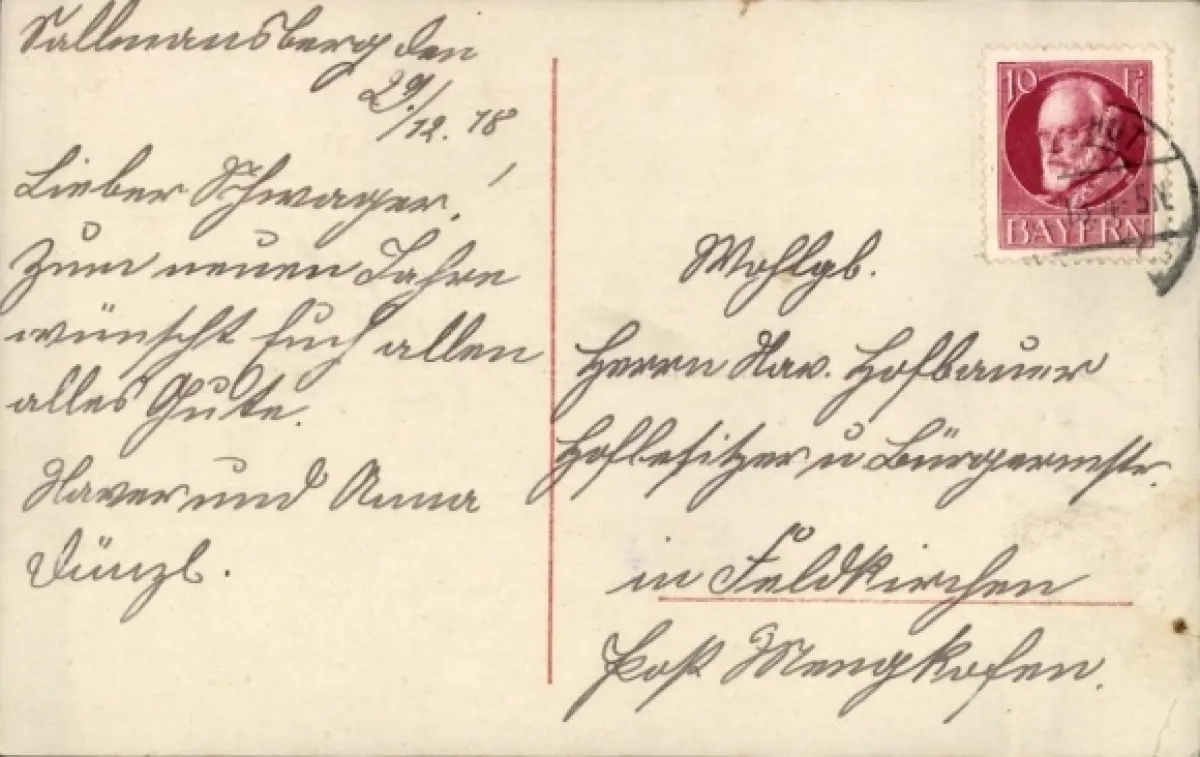 Sallmannsberg den
29./12. 18
Lieber Schwager!
Zum neuen Jahre
wünscht Euch allen
alles Gute.
Xaver und Anna
Dünzl.
10 Pf
BAYERN
Wohlgb.
Herrn Xav. Hofbauer
Hofbesitzer u Bürgermstr.
in Feldkirchen
Post Mengkofen.